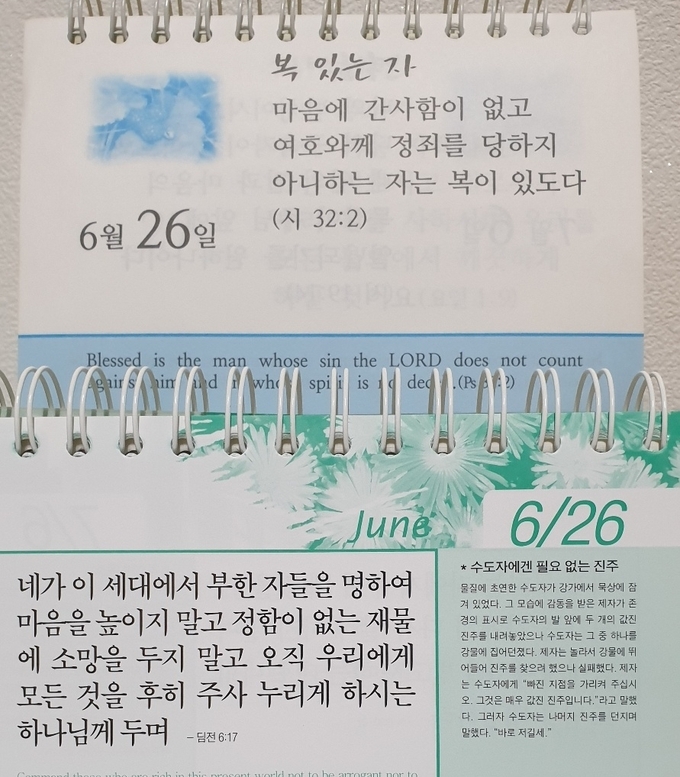 복 있는 자
마음에 간사함이 없고
여호와께 정죄를 당하지
아니하는 자는 복이 있도다
(시 32:2)
6월 26일
Blessed is the man whose sin the LORD does not count
against him and in whose spirit is no deceit.(Ps 32:2)
June 6/26
네가 이 세대에서 부한 자들을 명하여
마음을 높이지 말고 정함이 없는 재물
에 소망을 두지 말고 오직 우리에게
모든 것을 후히 주사 누리게 하시는
하나님께 두며 – 딤전 6:17
Command those who are rich in this present world not to be arrogant nor to
* 수도자에겐 필요 없는 진주
물질에 초연한 수도자가 강가에서 묵상에 잠
겨 있었다. 그 모습에 감동을 받은 제자가 존
경의 표시로 수도자의 발 앞에 두 개의 값진
진주를 내려놓았으나 수도자는 그 중 하나를
강물에 집어던졌다. 제자는 놀라서 강물에 뛰
어들어 진주를 찾으려 했으나 실패했다. 제자
는 수도자에게 "빠진 지점을 가리켜 주십시
오. 그것은 매우 값진 진주입니다."라고 말했
다. 그러자 수도자는 나머지 진주를 던지며
말했다. "바로 저길세."